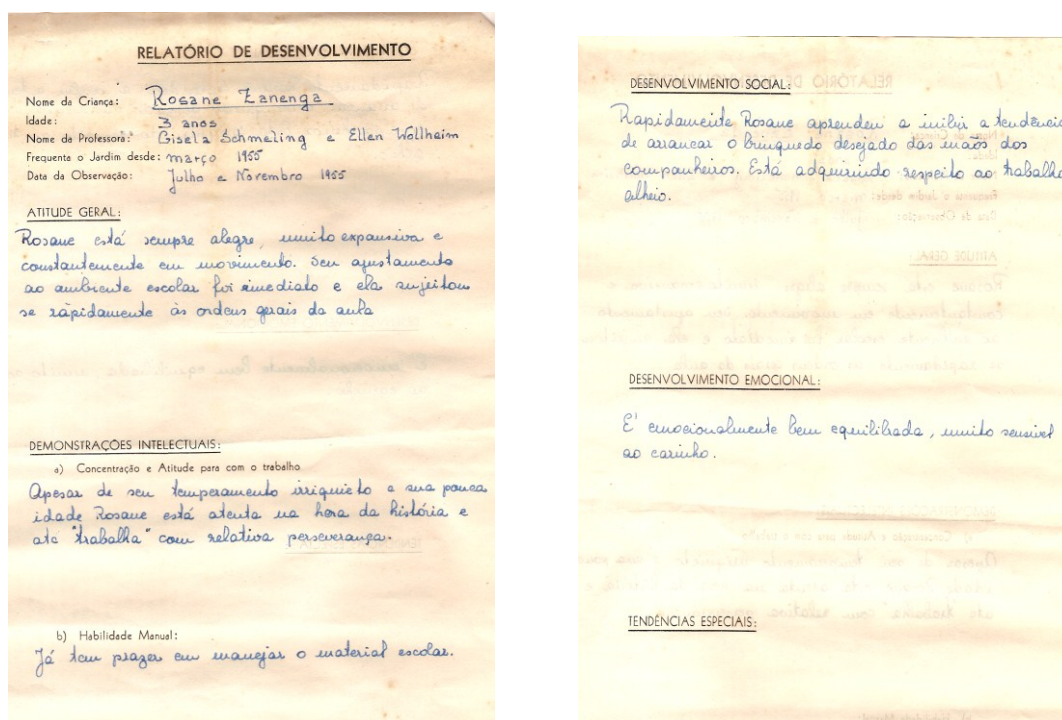 RELATÓRIO DE DESENVOLVIMENTO
Nome da Criança: Rosane Zanenga
Idade: 3 anos
Nome da Professora: Gisela Schmeling e Ellen Wollheim
Frequenta o Jardim desde: março 1955
Data da Observação: Julho e Novembro 1955
ATITUDE GERAL:
Rosane está sempre alegre, muito expansiva e
constantemente em movimento. Seu ajustamento
ao ambiente escolar foi imediato e ela sujeitou
se rapidamente às ordens gerais da aula
DEMONSTRAÇÕES INTELECTUAIS:
a) Concentração e Atitude para com o trabalho
Apesar de seu temperamento irriquieto e sua pouca
idade Rosane está atenta na hora da história e
até "trabalha" com relativa perseverança.
b) Habilidade Manual:
Já tem prazer em manejar o material escolar.
DESENVOLVIMENTO SOCIAL:
Rapidamente Rosane aprendeu a inibir a tendência
de arrancar o brinquedo desejado das mãos dos
companheiros. Está adquirindo respeito ao trabalho
alheio.
DESENVOLVIMENTO EMOCIONAL:
E' emocionalmente bem equilibrada, muito sensivel
ao carinho.
TENDÊNCIAS ESPECIAIS: